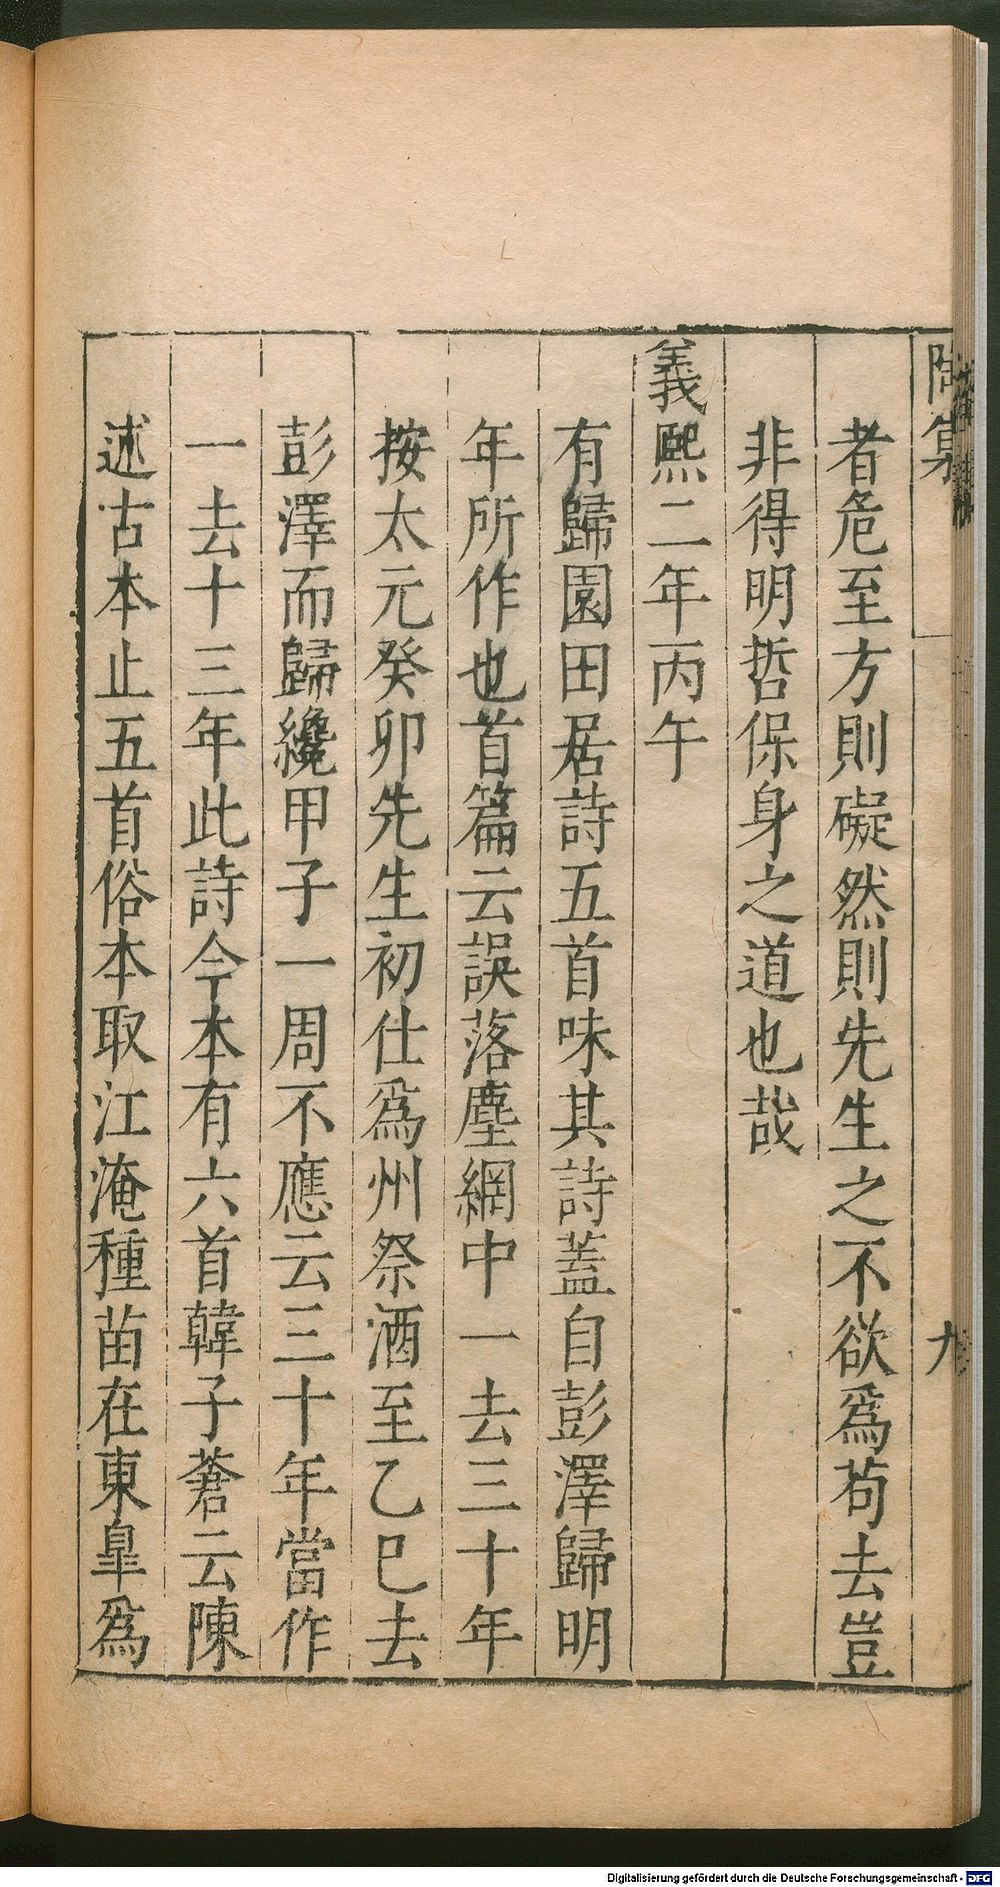 陶集
者危至方則礙然則先生之不欲爲苟去豈
非得明哲保身之道也哉
義熙二年丙午
有歸園田居詩五首味其詩蓋自彭澤歸明
年所作也首篇云誤落塵網中一去三十年
按太元癸卯先生初仕爲州祭酒至乙巳去
彭澤而歸纔甲子一周不應云三十年當作
一去十三年此詩今本有六首韓子蒼云陳
述古本止五首俗本取江淹種苗在東皐爲
Digitalisierung gefördert durch die Deutsche Forschungsgemeinschaft - DFG